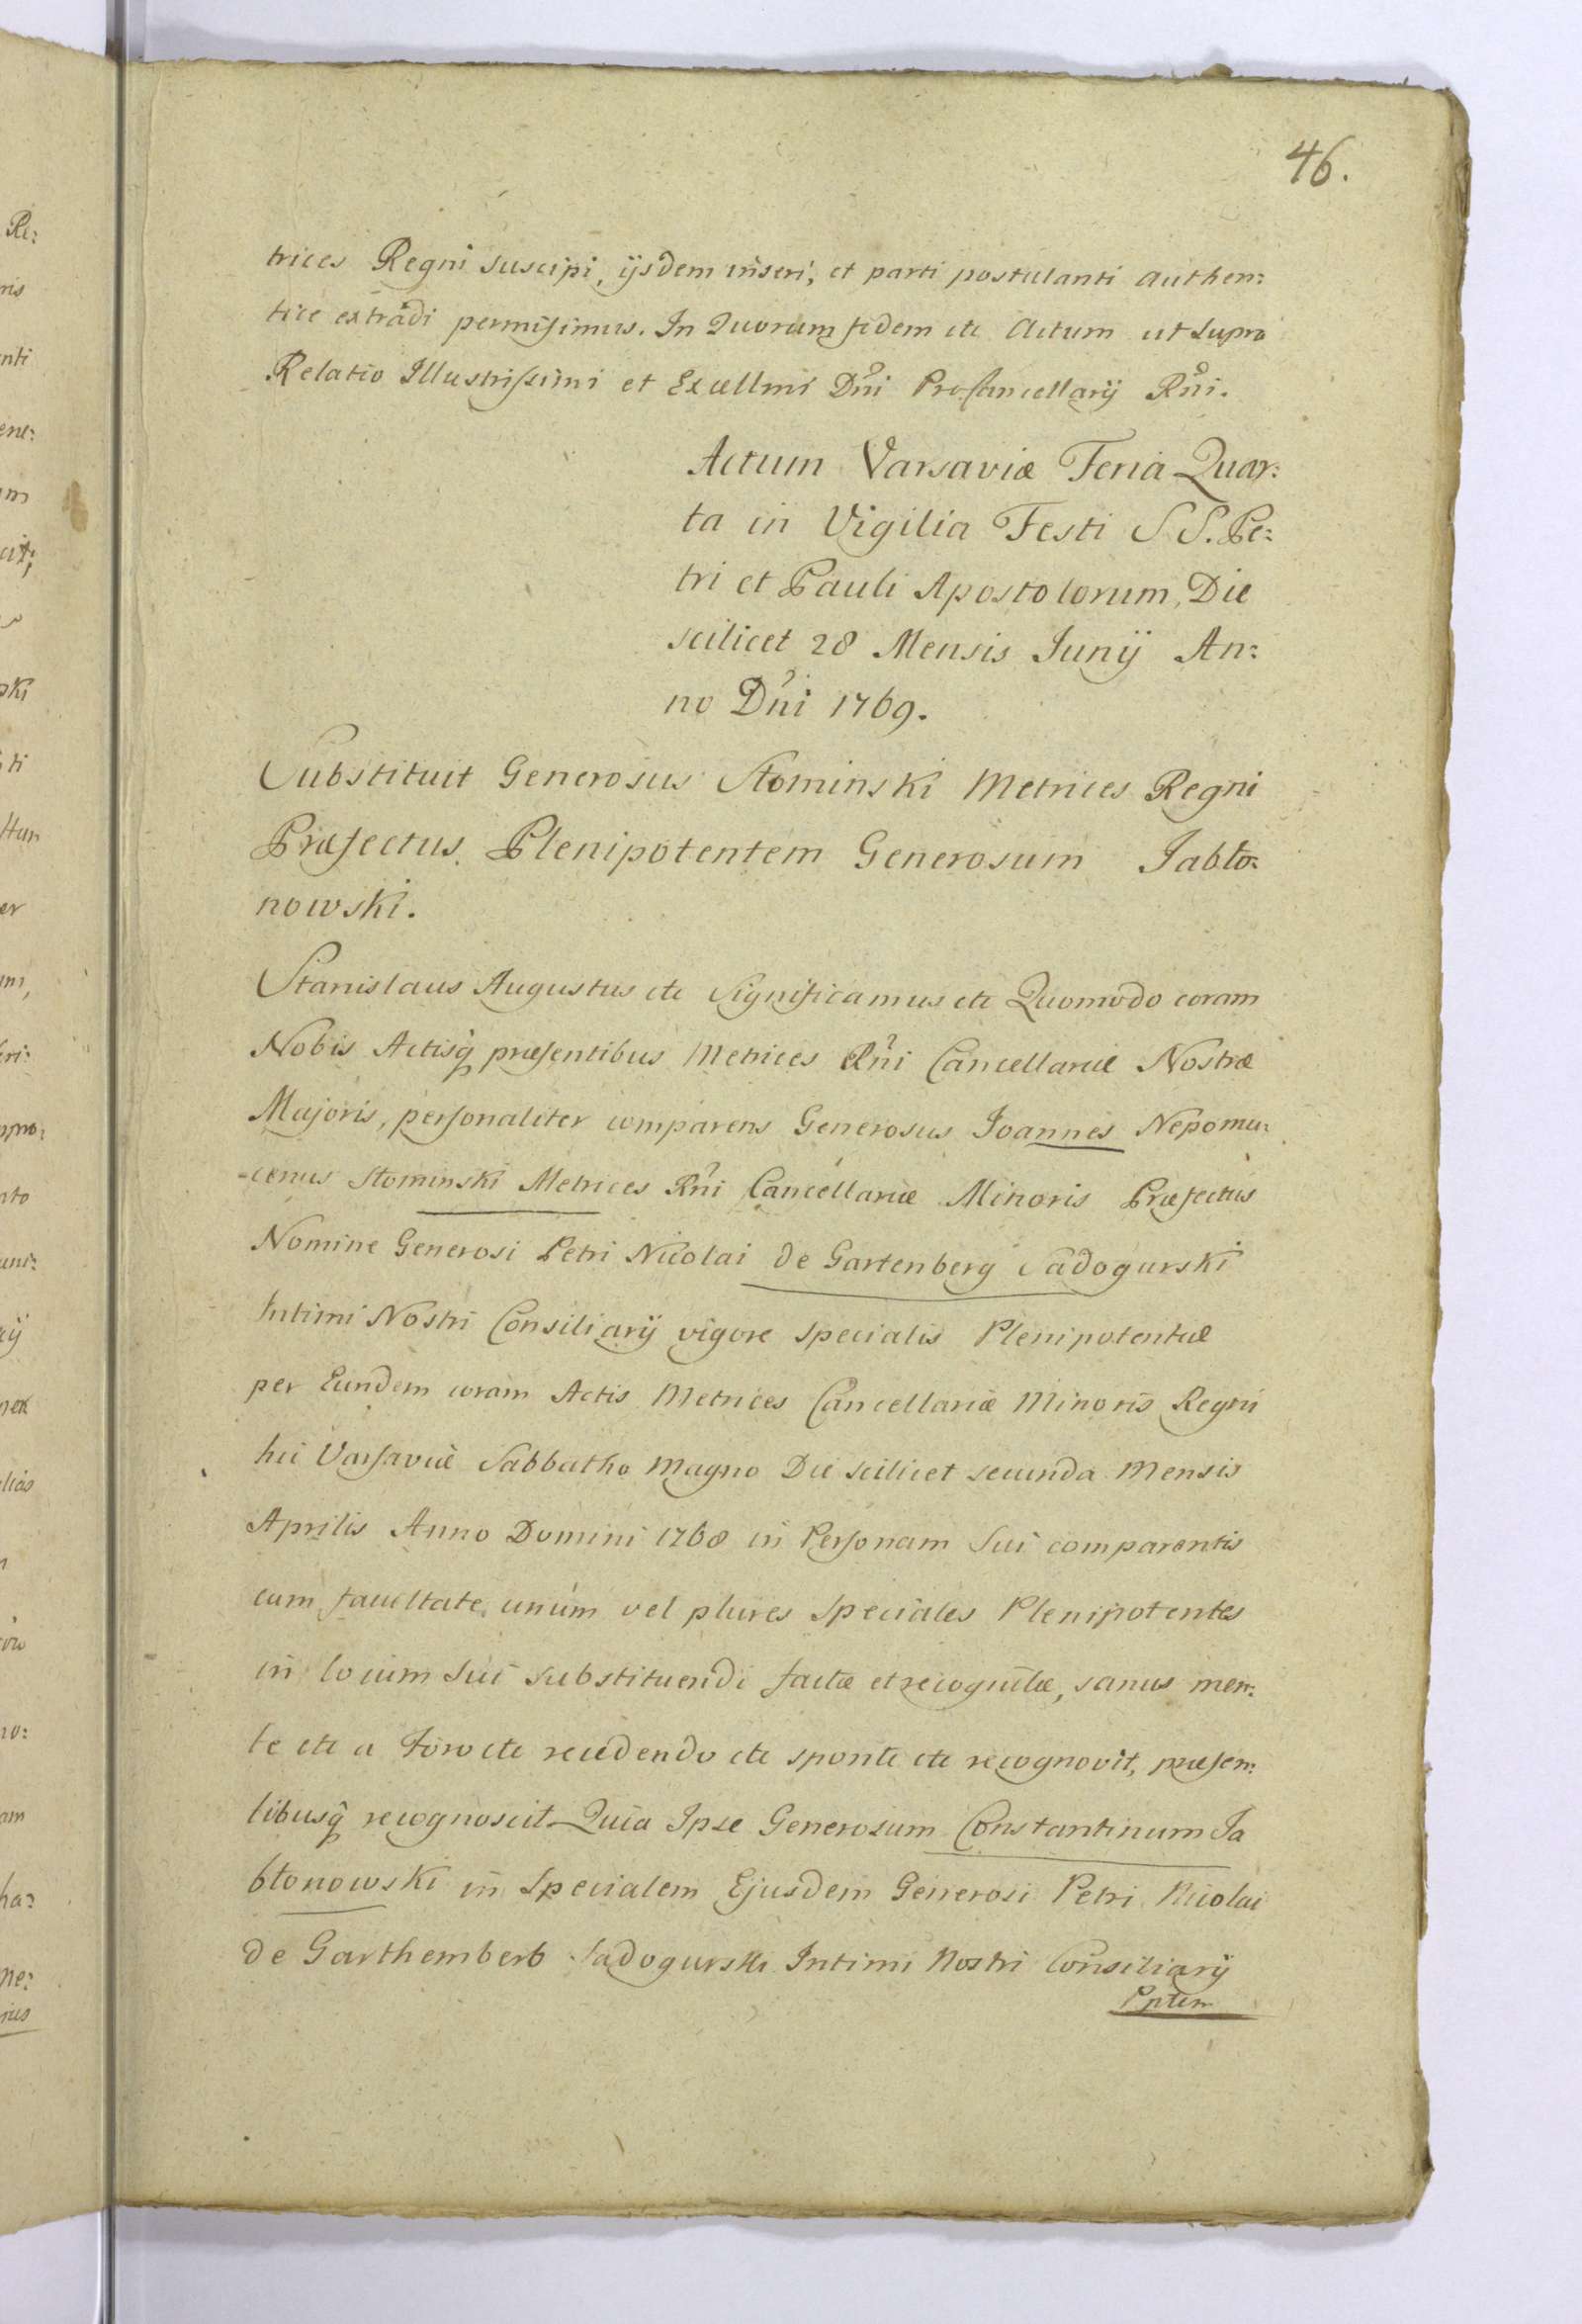 46.
trices Regni suscipi, ijsdem inseri, et parti postulanti authen:
tice extradi permisimus. In Quorum fidem etc Actum ut supra
Relatio Illustrissimi et Excellmi Dni ProCancellarij Rni.
Actum Varsaviæ Feria Quar:
ta in Vigilia Festi S S. Pe:
tri et Pauli Apostolorum, Die
scilicet 28 Mensis Junij An:
no Dni 1769.
Substituit Generosus Słominski Metrices Regni
Præfectus Plenipotentem Generosum Jabło:
nowski.
Stanislaus Augustus etc Significamus etc Quomodo coram
Nobis Actisq præsentibus Metrices Rni Cancellariæ Nostræ
Majoris, personaliter comparens Generosus Joannes Nepomu:
-cenus Słominski Metrices Rni Cancellariæ Minoris Præfectus
Nomine Generosi Petri Nicolai de Gartenberg Sadogurski
Intimi Nostri Consiliarij vigore specialis Plenipotentiæ
per Eundem coram Actis Metrices Cancellariæ Minoris Regni
hic Varsaviæ Sabbatho Magno Die scilicet secunda Mensis
Aprilis Anno Domini 1768 in Personam Sui comparentis
cum facultate unum vel plures Speciales Plenipotentes
in locum Sui substituendi factæ et recognitæ, sanus men:
te etc a Foro etc recedendo etc sponte etc recognovit, præsen:
tibusq recognoscit Quia Ipse Generosum Constantinum Ja
błonowski in Specialem Ejusdem Generosi Petri Nicolai
de Garthemberb Sadogurski Intimi Nostri Consiliarij
Pptem